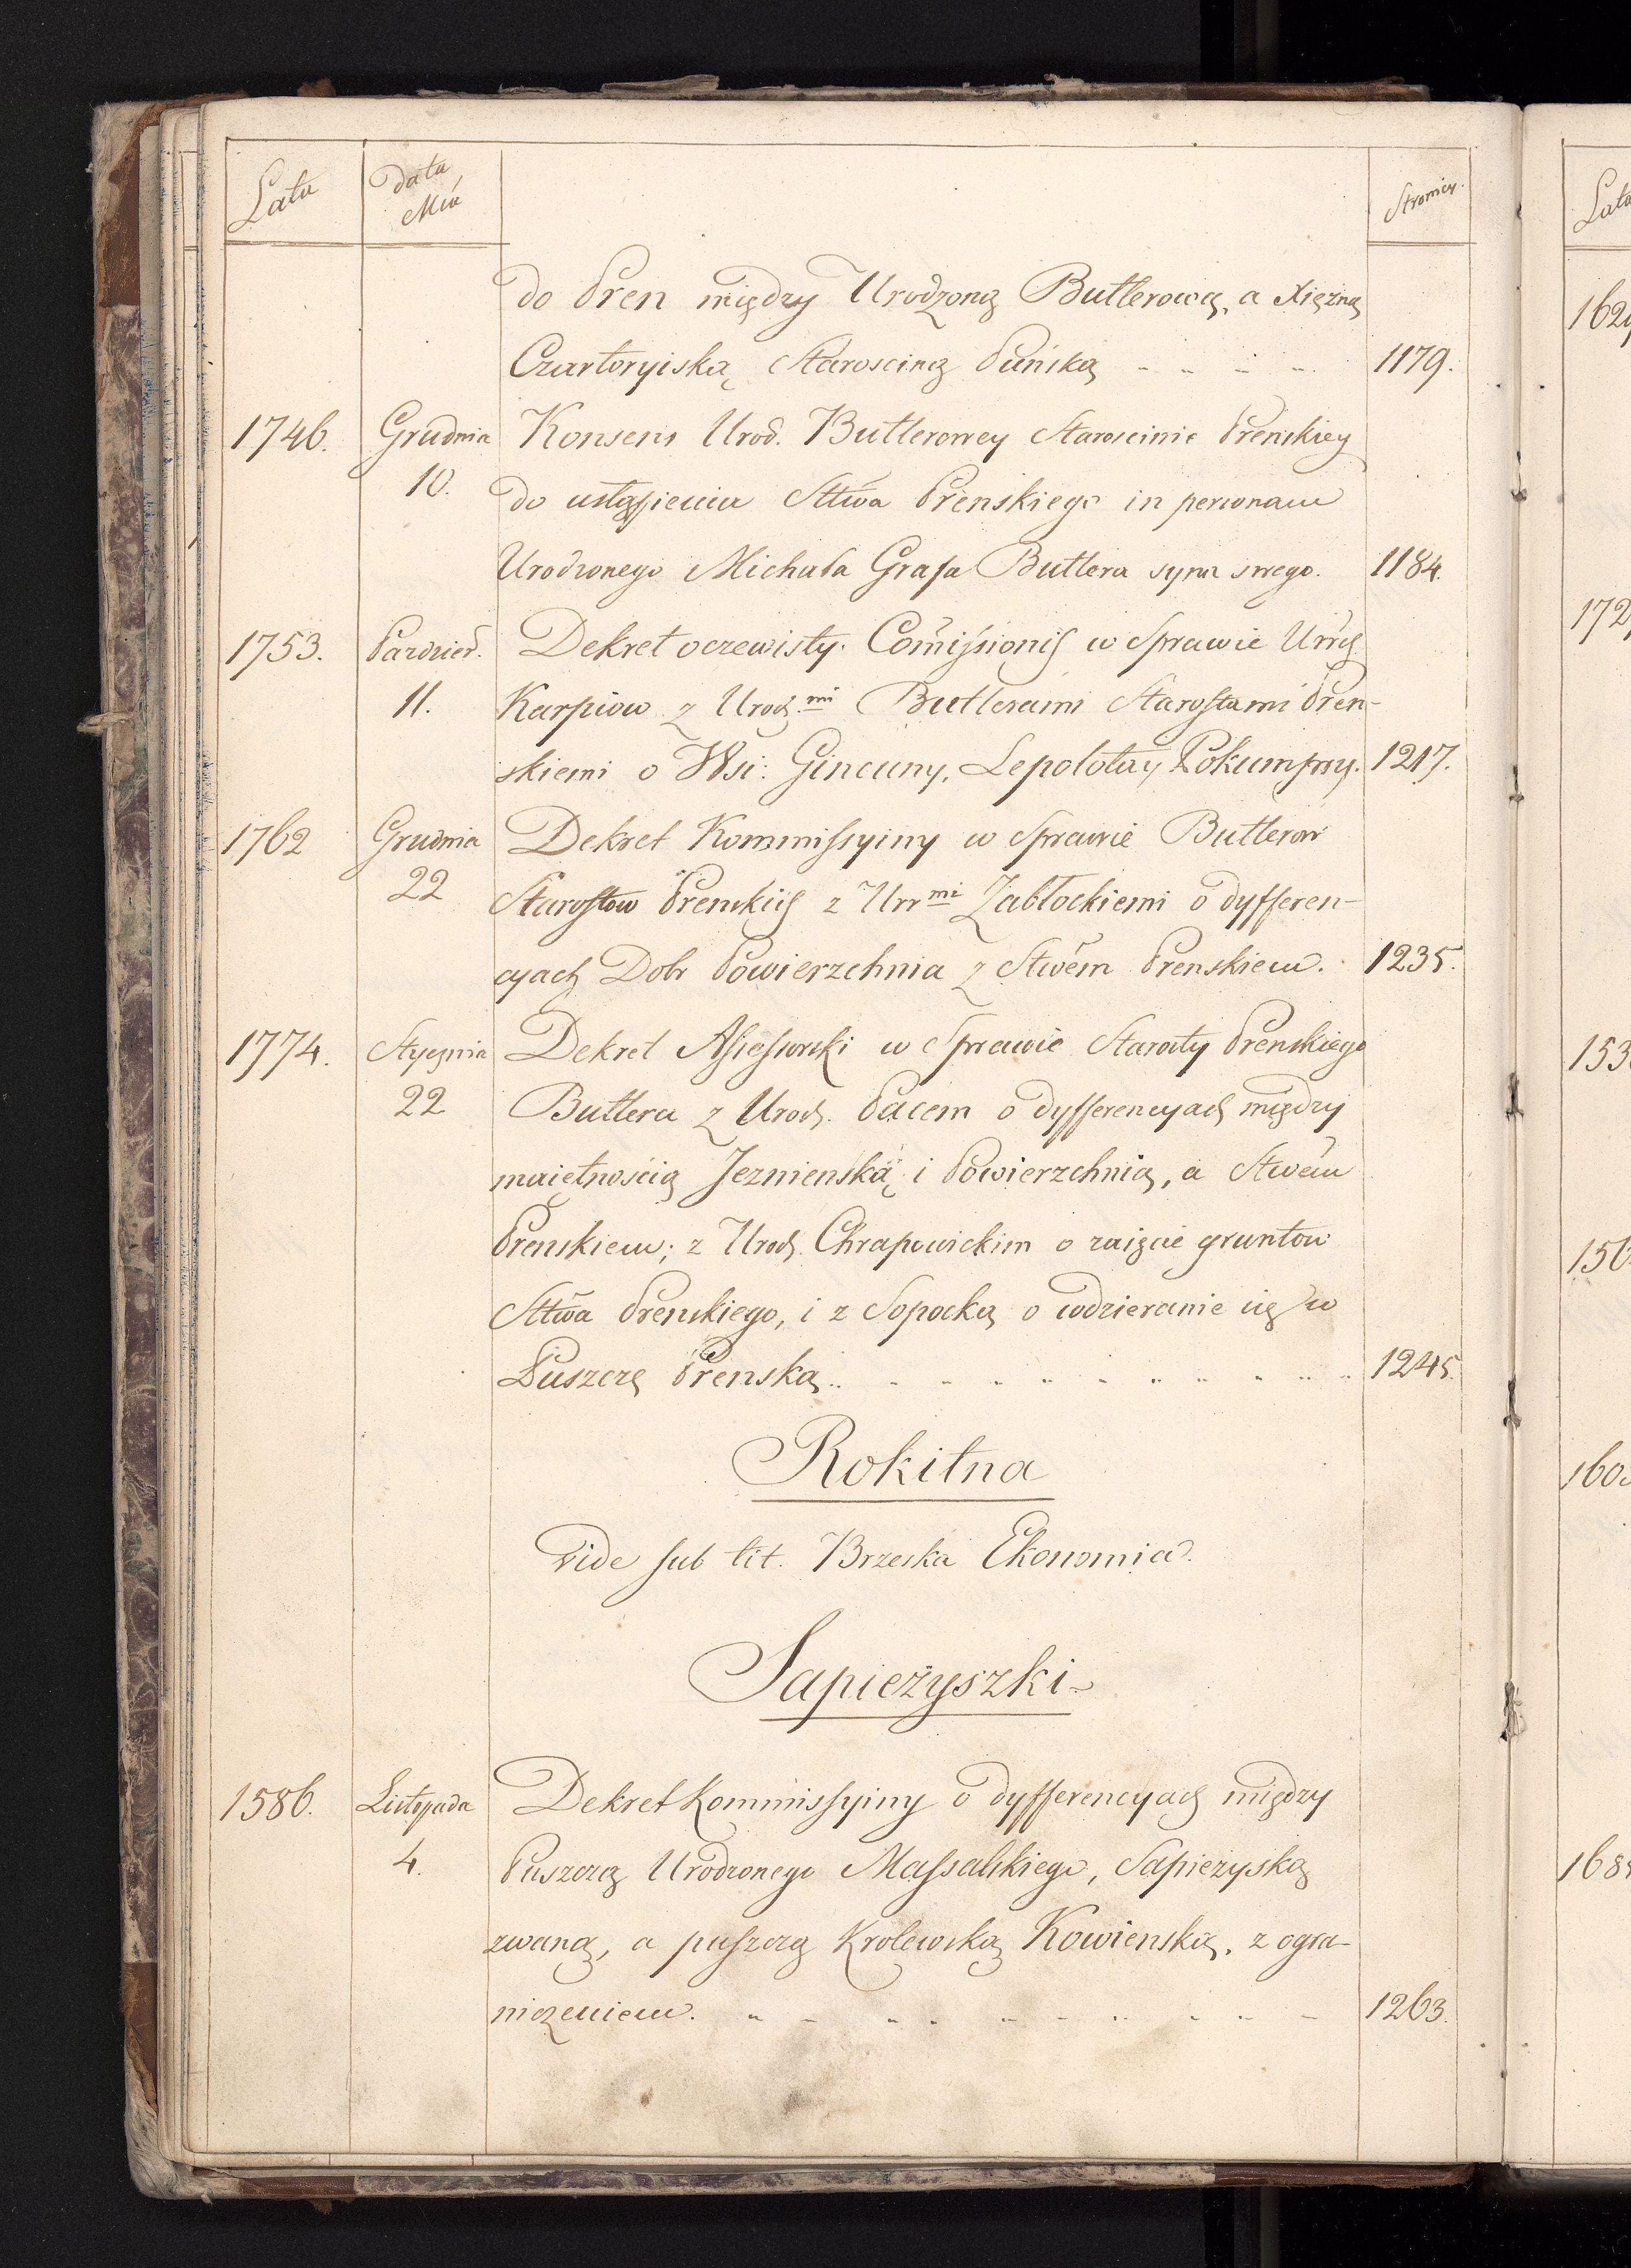 Lata Data Mca Stronica.
do Pren między Urodzoną Butlerową, a Xiężną
Czartoryiską Starosciną Puńską 1179.
1746. Grudnia Konsens Urod. Butlerowey Staroscinie Prenskiey
10. do ustąpienia Sttwa Prenskiego in personam
Urodzonego Michała Grafa Butlera syna swego. 1184.
1753. Pazdzier. Dekret oczewisty Comissionis w Sprawie Urrch
11. Karpiow z Urodz.mi Butlerami Starostami Pren-
skiemi o Wsi: Gincuny, Lepołoty, Pokumpry. 1217.
1762 Grudnia Dekret Kommissyiny w Sprawie Butlerow
22 Starostow Prenskich z Urr mi Zabłockiemi o dyfferen-
cyach Dobr Powierzchnia z Stwem Prenskiem. 1235.
1774. Stycznia Dekret Assessorski w Sprawie Starosty Prenskiego
22 Butlera z Urodz. Pacem o dyfferencyach między
maiętnością Jeznienską i Powierzchnią, a Stwem
Prenskiem; z Urodz. Chrapowickim o zaięcie gruntow
Sttwa Prenskiego, i z Sopocką o wdzieranie się w
Puszczę Prenską. 1245.
Rokitna
Vide sub tit. Brzeska Ekonomia.
Sapieżyszki
1586. Listopada Dekret Kommissyiny o dyfferencyach między
4. Puszczą Urodzonego Massalskiego, Sapieżyską
zwaną, a puszczą Krolewską Kowienską, z ogra-
niczeniem. 1263.